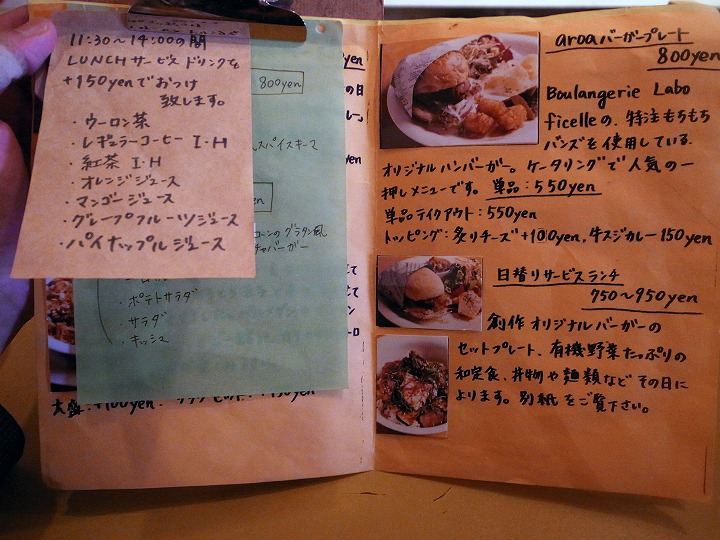 11:30～14:00の間
LUNCHサービス ドリンクを
+150yenでおつけ
致します。
・ウーロン茶
・レギュラーコーヒー I・H
・紅茶 I・H
・オレンジジュース
・マンゴージュース
・グレープフルーツジュース
・パイナップルジュース
800yen
スパイスキーマ
コーンのグラタン風
バーガー
・ポテトサラダ
・サラダ
・キッシュ
大盛:+100yen.
aroaバーガープレート
800yen
Boulangerie Labo
ficelleの、特注もちもち
バンズを使用している
オリジナルハンバーガー。ケータリングで人気の一
押しメニューです。単品:550yen
単品テイクアウト:550yen
トッピング:炙りチーズ+100yen,牛スジカレー150yen
日替りサービスランチ
750～950yen
創作オリジナルバーガーの
セットプレート、有機野菜たっぷりの
和定食、丼物や麺類など その日に
よります。別紙をご覧下さい。